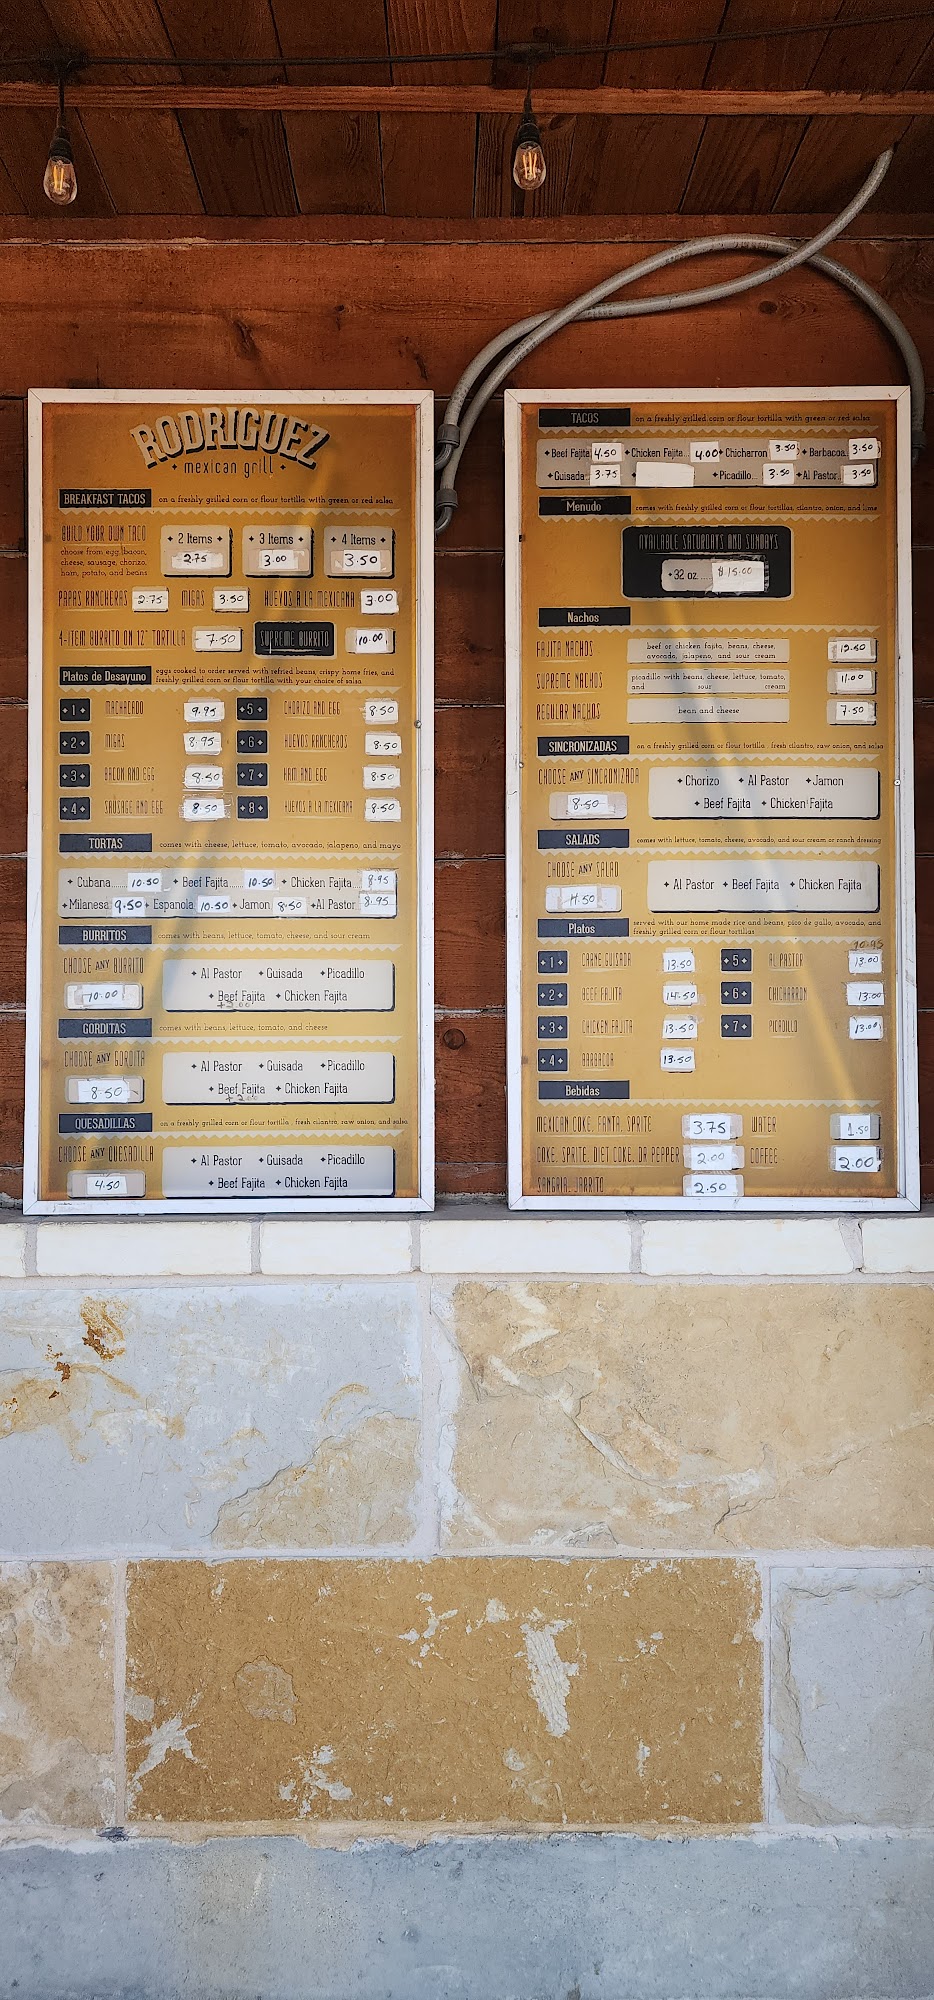 RODRIGUEZ
mexican grill
BREAKFAST TACOS on a freshly grilled corn or flour tortilla with green or red salsa
BUILD YOUR OWN TACO
choose from egg, bacon,
cheese, sausage, chorizo,
ham, potato, and beans
2 Items 3 Items 4 Items
2.75 3.00 3.50
PAPAS RANCHERAS 2.75 MIGAS 3.50 HUEVOS A LA MEXICANA 3.00
4-ITEM BURRITO ON 12" TORTILLA 7.50 SUPREME BURRITO 10.00
Platos de Desayuno eggs cooked to order served with refried beans, crispy home fries, and
freshly grilled corn or flour tortilla with your choice of salsa
1 MACHACADO 9.95 5 CHORIZO AND EGG 8.50
2 MIGAS 8.95 6 HUEVOS RANCHEROS 8.50
3 BACON AND EGG 8.50 7 HAM AND EGG 8.50
4 SAUSAGE AND EGG 8.50 8 HUEVOS A LA MEXICANA 8.50
TORTAS comes with cheese, lettuce, tomato, avocado, jalapeno, and mayo
Cubana....... 10.50 Beef Fajita...... 10.50 Chicken Fajita... 8.95
Milanesa 9.50 Espanola 10.50 Jamon 8.50 Al Pastor 8.95
BURRITOS comes with beans, lettuce, tomato, cheese, and sour cream
CHOOSE ANY BURRITO
10.00
Al Pastor Guisada Picadillo
Beef Fajita Chicken Fajita
GORDITAS comes with beans, lettuce, tomato, and cheese
CHOOSE ANY GORDITA
8.50
Al Pastor Guisada Picadillo
Beef Fajita Chicken Fajita
QUESADILLAS on a freshly grilled corn or flour tortilla , fresh cilantro, raw onion, and salsa
CHOOSE ANY QUESADILLA
4.50
Al Pastor Guisada Picadillo
Beef Fajita Chicken Fajita
TACOS on a freshly grilled corn or flour tortilla with green or red salsa
Beef Fajita 4.50 Chicken Fajita... 4.00 Chicharron 3.50 Barbacoa.. 3.50
Guisada.. 3.75 Picadillo... 3.50 Al Pastor... 3.50
Menudo comes with freshly grilled corn or flour tortillas, cilantro, onion, and lime
AVAILABLE SATURDAYS AND SUNDAYS
32 oz..... $15.00
Nachos
FAJITA NACHOS beef or chicken fajita, beans, cheese, avocado, jalapeno, and sour cream 12.50
SUPREME NACHOS picadillo with beans, cheese, lettuce, tomato, and sour cream 11.00
REGULAR NACHOS bean and cheese 7.50
SINCRONIZADAS on a freshly grilled corn or flour tortilla . fresh cilantro, raw onion, and salsa
CHOOSE ANY SINCRONIZADA
8.50
Chorizo Al Pastor Jamon
Beef Fajita Chicken Fajita
SALADS comes with lettuce, tomato, cheese, avocado, and sour cream or ranch dressing
CHOOSE ANY SALAD
11.50
Al Pastor Beef Fajita Chicken Fajita
Platos served with our home made rice and beans, pico de gallo, avocado, and
freshly grilled corn or flour tortillas
10.95
1 CARNE GUISADA 13.50 5 AL PASTOR 13.00
2 BEEF FAJITA 14.50 6 CHICHARRON 13.00
3 CHICKEN FAJITA 13.50 7 PICADILLO 13.00
4 BARBACOA 13.50
Bebidas
MEXICAN COKE, FANTA, SPRITE 3.75 WATER 1.50
COKE, SPRITE, DIET COKE, DR PEPPER 2.00 COFFEE 2.00
SANGRIA, JARRITO 2.50